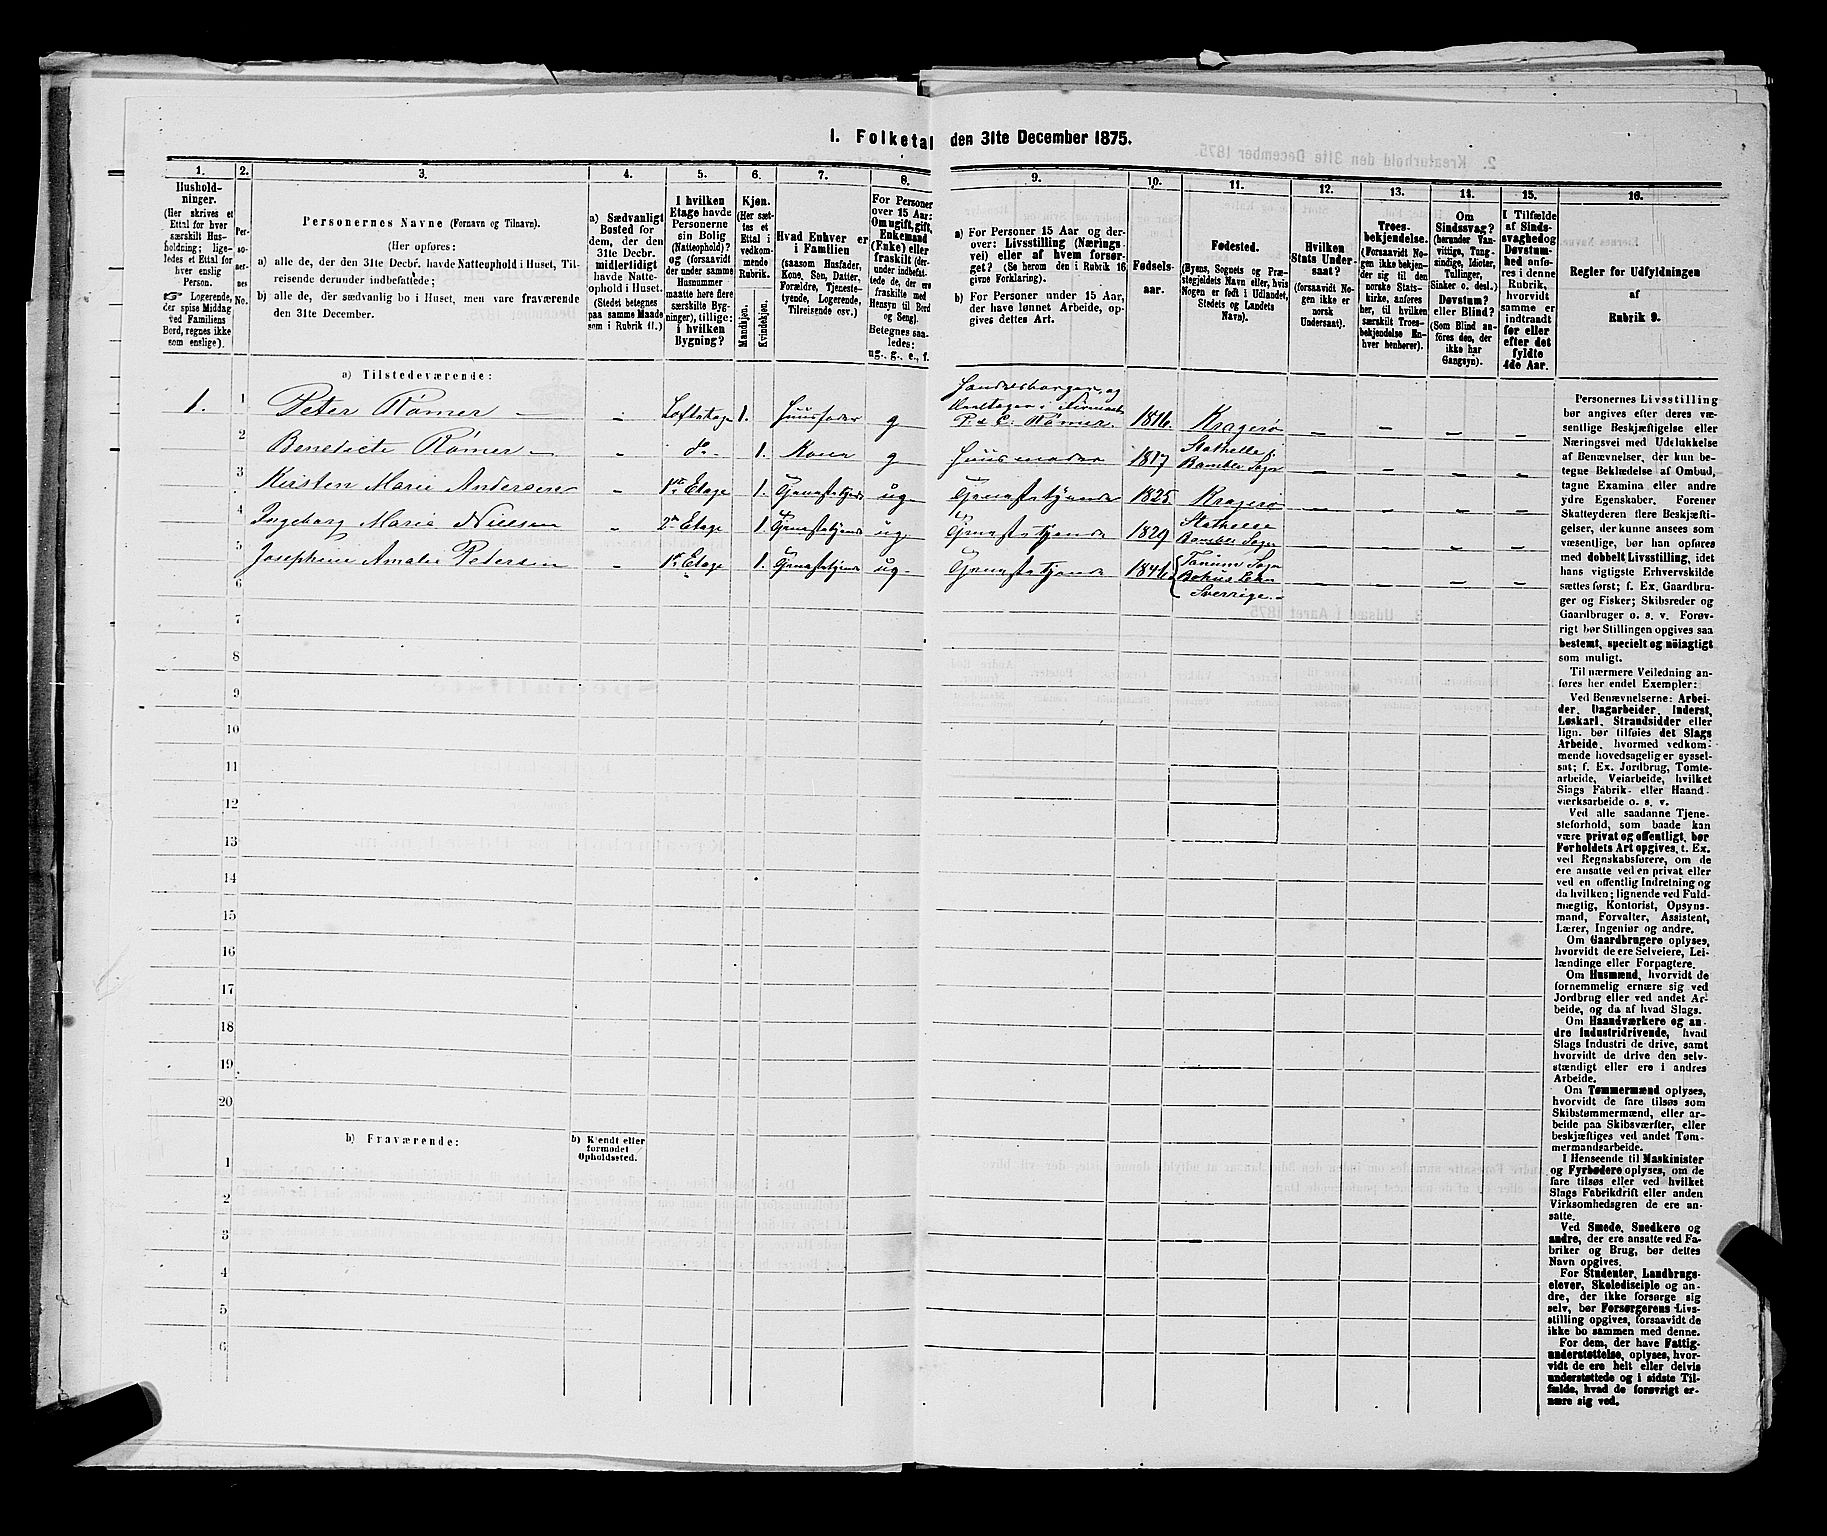 1. Folketal den 31te December 1875.
1.
2.
3.
4.
5.
6.
7.
8.
9.
10.
11.
12.
13.
14.
15.
16.
Hushold-
ninger.
(Her skrives et
Ettal for hver
særskilt Hus-
holdning; lige-
ledes et Ettal for
hver enslig
Person.
☞ Logerende,
der spise Middag
ved Familiens
Bord, regnes ikke
som enslige).
Per-
so-
ner-
nes
No.
Personernes Navne (Fornavn og Tilnavn).
(Her opføres:
a) alle de, der den 31te Decbr. havde Natteophold i Huset, Til-
reisende derunder indbefattede;
b) alle de, der sædvanlig bo i Huset, men vare fraværende
den 31te December.
a) Sædvanligt
Bosted for
dem, der den
31te Decbr.
midlertidigt
havde Natte-
ophold i Huset.
(Stedet betegnes
paa samme Maade
som i Rubrik 11.)
I hvilken
Etage havde
Personerne
sin Bolig
(Natteophold)?
og (forsaavidt
der under samme
Husnummer
maatte være flere
særskilte Byg-
ninger), tillige:
i hvilken
Bygning?
Kjøn.
(Her sæt-
tes et
Ettal i
vedkom-
mende
Rubrik.
Mandkjøn.
Kvindekjøn.
Hvad Enhver er
i Familien
(saasom Husfader,
Kone, Søn, Datter,
Forældre, Tjeneste-
tyende, Logerende,
Tilreisende osv.)
For Personer
over 15 Aar:
Om ugift, gift,
Enkemand
(Enke) eller
fraskilt (der-
under indbefat-
tede de, der ere
fraskilte med
Hensyn til Bord
og Seng).
Betegnes saa-
ledes:
ug., g., e., f.
a) For Personer 15 Aar og der-
over: Livsstilling (Nærings-
vei) eller af hvem forsør-
get? (Se herom den i Rubrik 16
givne Forklaring).
b) For Personer under 15 Aar,
der have lønnet Arbeide, op-
gives dettes Art.
Fødsels-
aar.
Fødested.
(Byens, Sognets og Præ-
stegjeldets Navn eller, hvis
Nogen er født i Udlandet,
Stedets og Landets
Navn).
Hvilken
Stats Under-
saat?
(forsaavidt No-
gen ikke er
norsk
Undersaat).
Troes-
bekjendelse.
(Forsaavidt No-
gen ikke bekjen-
der sig til den
norske Stats-
kirke, anføres
her, til hvilken
særskilt Troes-
bekjendelse En-
hver henhører).
Om
Sindssvag?
(herunder Van-
vittige, Tung-
sindige, Idioter,
Tullinger,
Sinker o. desl.)
Døvstum?
eller Blind?
(Som Blind an-
føres den, der
ikke har
Gangsyn).
I Tilfælde
af Sinds-
svaghed og
Døvstum-
hed anfø-
res i denne
Rubrik,
hvorvidt
samme er
indtraadt
før eller
efter det
fyldte
4de Aar.
Regler for Udfyldningen
af
Rubrik 9.
a) Tilstedeværende:
1. 1 Peter Rømer — - Loftetage 1. Huusfader g Handelsborger og Deeltager i Firmaet P. & C. Rømer. 1816. Kragerø — — — —
2 Benedicte Rømer — - do- 1. Kone g Huusmoder 1817 Stathelle, Bamble Sogn — — — —
3 Kirsten Marie Andersen - 1ste Etage 1. Tjenestetyende ug Tjenestetyende 1825 Kragerø — — — —
4 Ingeborg Marie Nielsen - 2den Etage 1. Tjenestetyende ug. Tjenestetyende 1829 Stathelle Bamble Sogn — — — —
5 Josephine Amalie Petersen - 1ste Etage 1. Tjenestetyende ug Tjenestetyende 1846 Tanum Sogn Bohus Lehn Sverrige. — — — —
6
7
8
9
10
11
12
13
14
15
16
17
18
19
20
b) Fraværende:
b) Kjendt eller
formodet
Opholdssted.
1
2
3
4
5
6
Personernes Livsstilling
bør angives efter deres væ-
sentlige Beskjæftigelse eller
Næringsvei med Udelukkelse
af Benævnelser, der kun be-
tegne Beklædelse af Ombud,
tagne Examina eller andre
ydre Egenskaber. Forener
Skatteyderen flere Beskjæfti-
gelser, der kunne ansees som
væsentlige, bør han opføres
med dobbelt Livsstilling, idet
hans vigtigste Erhvervskilde
sættes først; f. Ex. Gaardbru-
ger og Fisker; Skibsreder og
Gaardbruger o. s. v. Forøv-
rigt bør Stillingen opgives saa
bestemt, specielt og nöiagtigt
som muligt.
Til nærmere Veiledning an-
føres her endel Exempler:
Ved Benævnelserne: Arbei-
der, Dagarbeider, Inderst,
Løskarl, Strandsidder eller
lign. bør tilføies det Slags
Arbeide, hvormed vedkom-
mende hovedsagelig er syssel-
sat; f. Ex. Jordbrug, Tomte-
arbeide, Veiarbeide, hvilket
Slags Fabrik- eller Haand-
værksarbeide o. s. v.
Ved alle saadanne Tjene-
steforhold, som baade kan
være privat og offentligt, bør
Forholdets Art opgives, t. Ex.
ved Regnskabsførere, om de
ere ansatte ved en privat eller
ved en offentlig Indretning og
da hvilken; lignende ved Fuld-
mægtig, Kontorist, Opsyns-
mand, Forvalter, Assistent,
Lærer, Ingeniør og andre.
Om Gaardbrugere oplyses,
hvorvidt de ere Selveiere, Lei-
lændinge eller Forpagtere.
Om Husmænd, hvorvidt de
fornemmelig ernære sig ved
Jordbrug eller ved andet Ar-
beide, og da af hvad Slags.
Om Haandværkere og an-
dre Industridrivende, hvad
Slags Industri de drive, samt
hvorvidt de drive den selv-
stændigt eller ere i andres
Arbeide.
Om Tømmermænd oplyses,
hvorvidt de fare tilsøs som
Skibstømmermænd, eller ar-
beide paa Skibsværfter, eller
beskjæftiges ved andet Tøm-
mermandsarbeide.
I Henseende til Maskinister
og Fyrbødere oplyses, om de
fare tilsøs eller ved hvilket
Slags Fabrikdrift eller anden
Virksomhedsgren de ere an-
satte.
Ved Smede, Snedkere og
andre, der ere ansatte ved Fa-
briker og Brug, bør dettes
Navn opgives.
For Studenter, Landbrugs-
elever, Skoledisciple og an-
dre, der ikke forsørge sig
selv, bør Forsørgerens Livs-
stilling opgives, forsaavidt de
ikke bo sammen med denne.
For dem, der have Fattig-
understøttelse, oplyses, hvor-
vidt de ere helt eller delvis
understøttede og i sidste Til-
fælde, hvad de forøvrigt er-
nære sig ved.